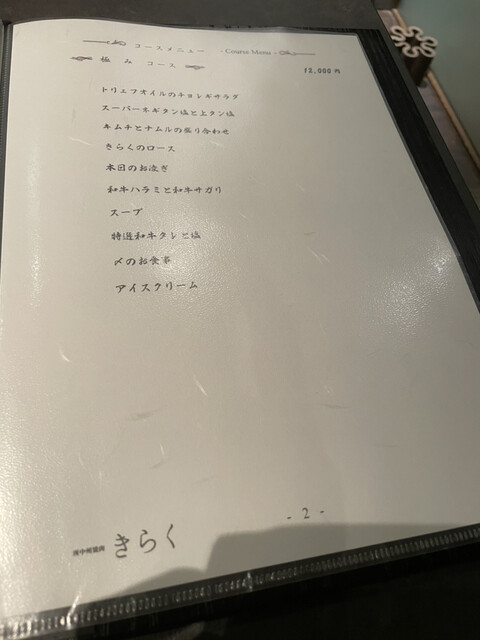 コースメニュー - Course Menu -
極み コース
¥8,000円
トリュフオイルのチョレギサラダ
スーパーネギタン塩と上タン塩
キムチとナムルの盛り合わせ
きらくのロース
本日のお凌ぎ
和牛ハラミと和牛サガリ
スープ
特選和牛タレと塩
〆のお食事
アイスクリーム
- 2 -
西中洲焼肉 きらく